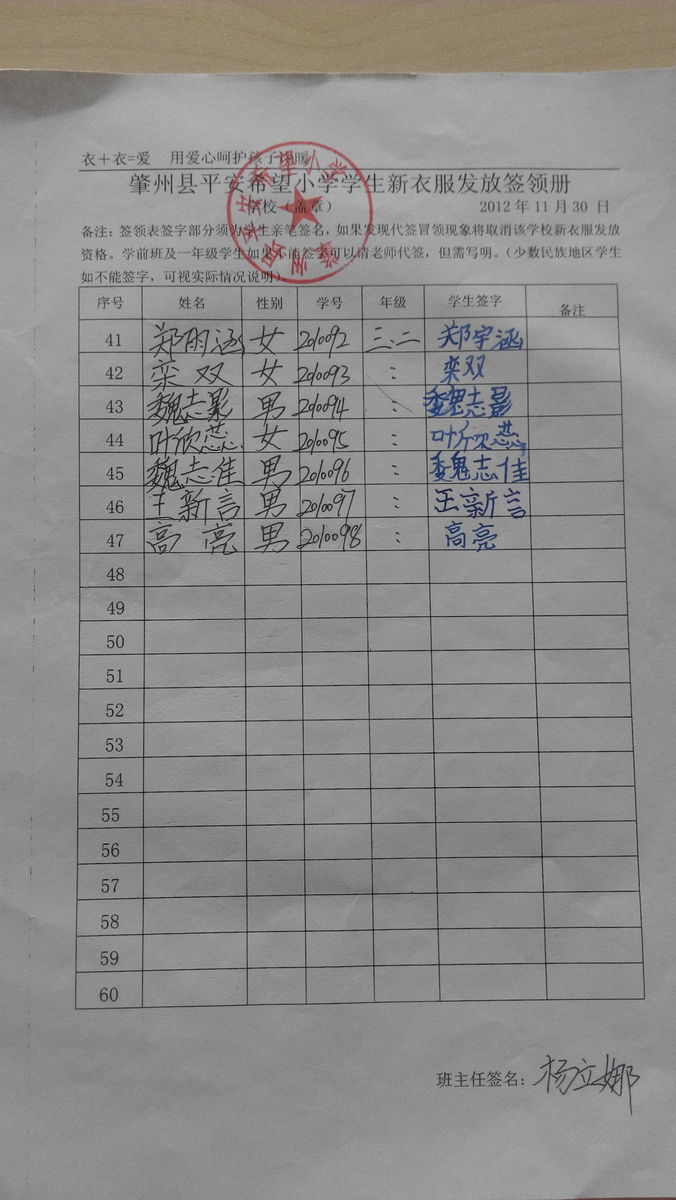 衣+衣=爱 用爱心呵护孩子冷暖
肇州县平安希望小学学生新衣服发放签领册
学校(盖章) 2012年11月30日
备注:签领表签字部分须为学生亲笔签名,如果发现代签冒领现象将取消该学校新衣服发放
资格。学前班及一年级学生如果不能签字可以请老师代签,但需写明。(少数民族地区学生
如不能签字,可视实际情况说明)
序号 姓名 性别 学号 年级 学生签字 备注
41 郑雨涵 女 2010092 三.二 郑宇涵
42 栾双 女 2010093 : 栾双
43 魏志影 男 2010094 : 魏志影
44 叶欣蕊 女 2010095 : 叶欣蕊
45 魏志佳 男 2010096 : 魏志佳
46 王新言 男 2010097 : 王新言
47 高亮 男 2010098 : 高亮
48
49
50
51
52
53
54
55
56
57
58
59
60
班主任签名: 杨立娜